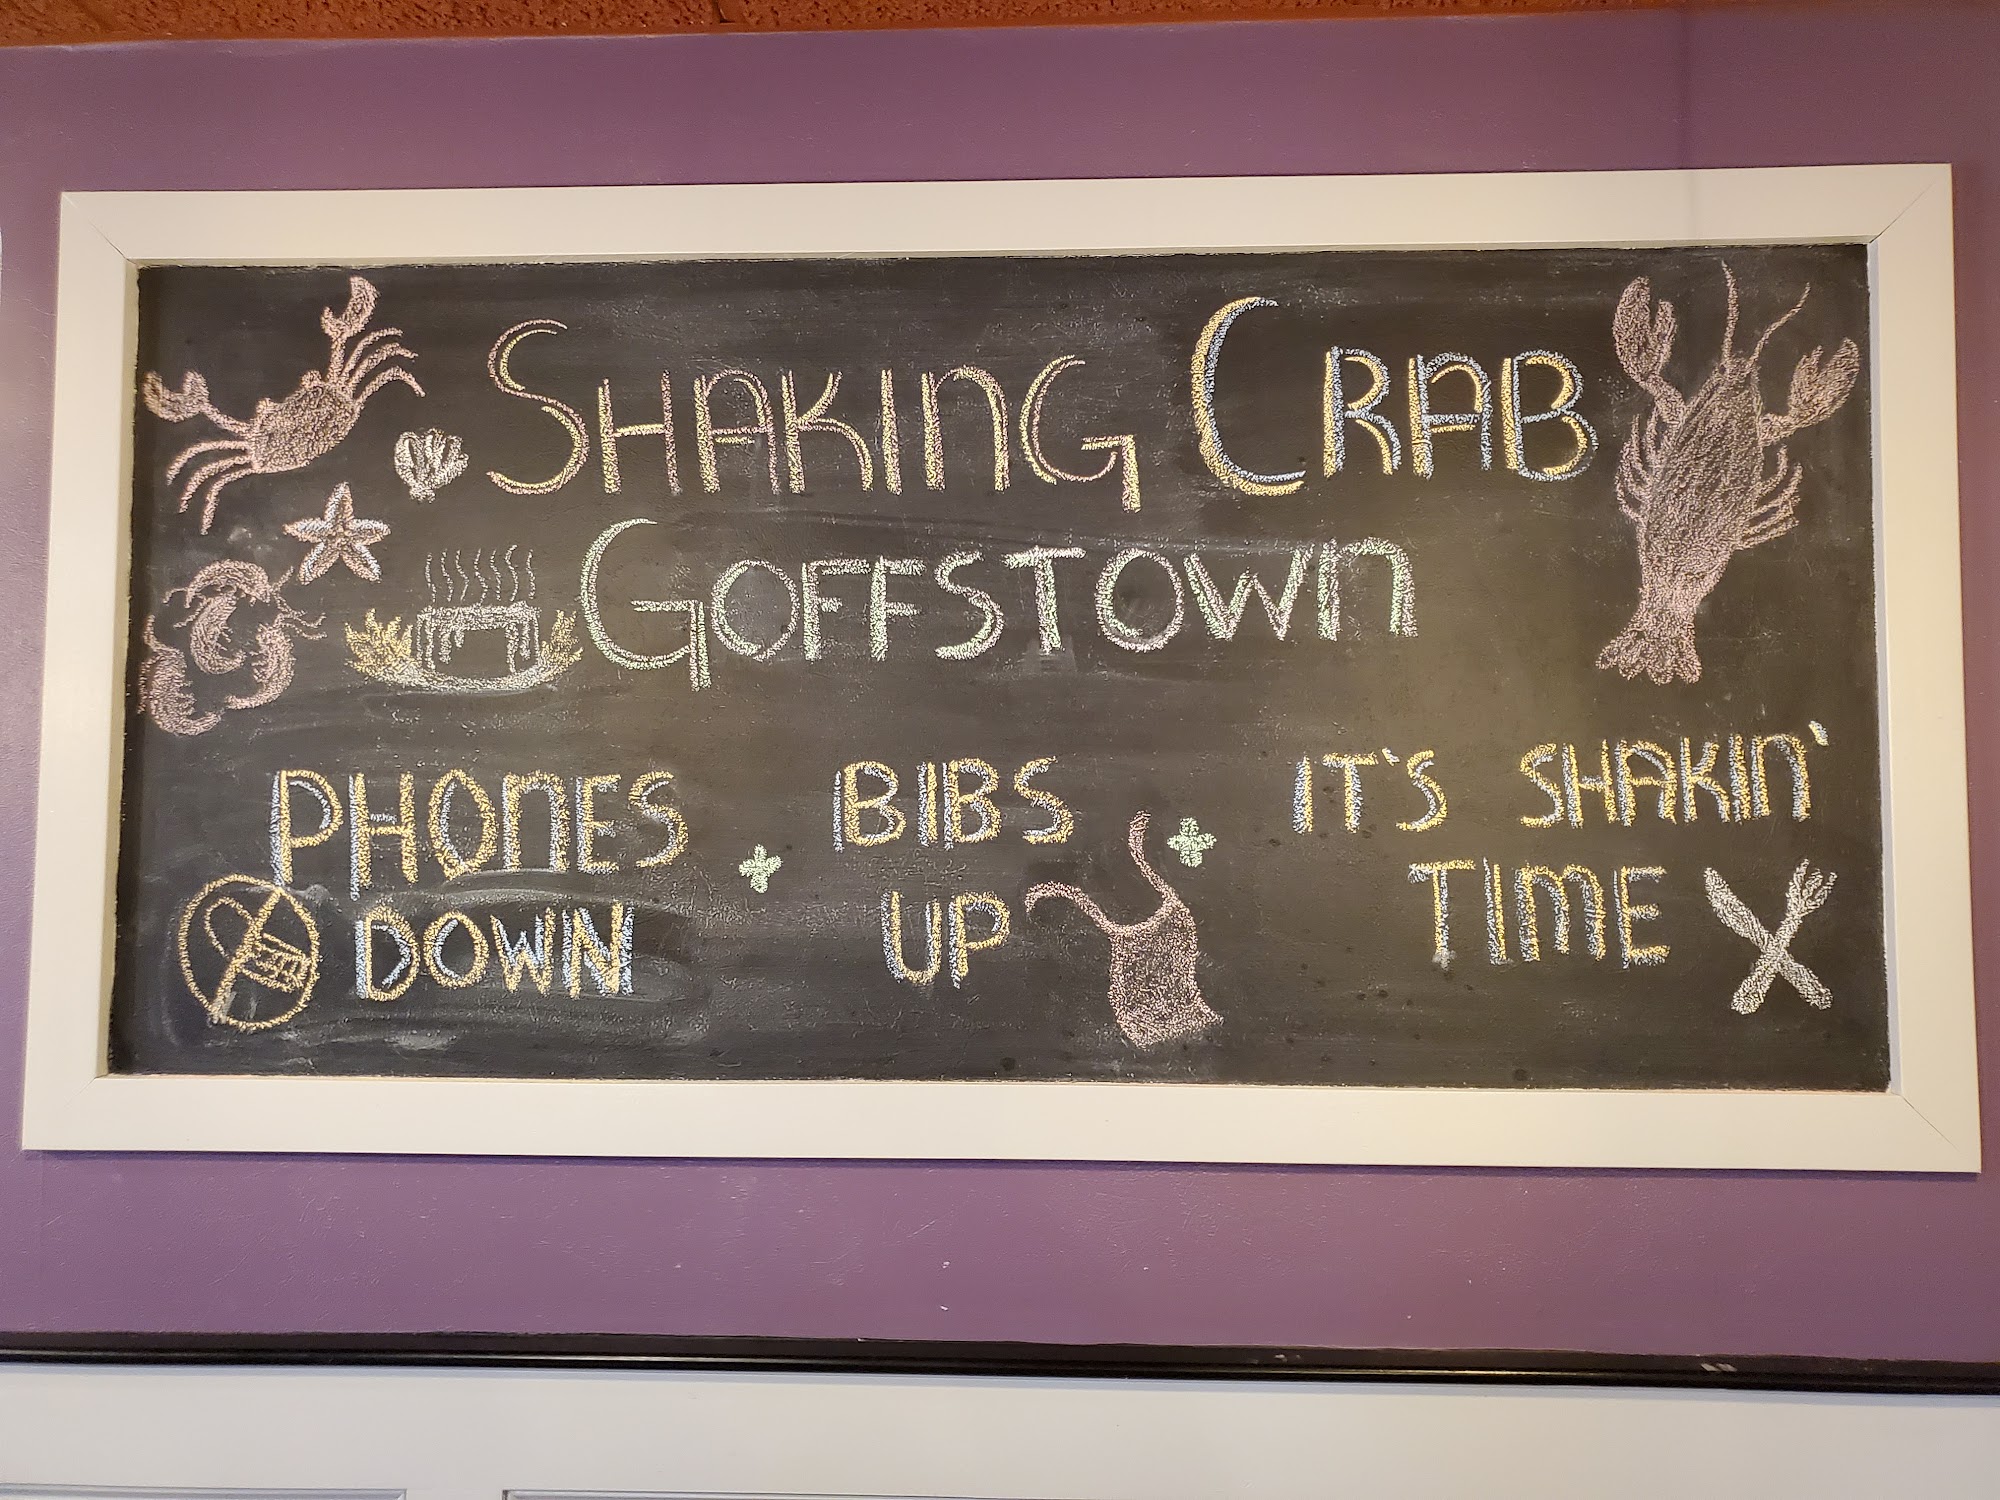 SHAKING CRAB
GOFFSTOWN
PHONES DOWN
BIBS UP
IT'S SHAKIN' TIME